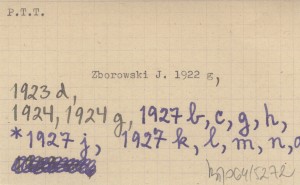 P.T.T.
Zborowski J. 1922 g,
1923 d,
1924, 1924 g, 1927 b, c, g, h,
*1927 j, 1927 k, l, m, n, o